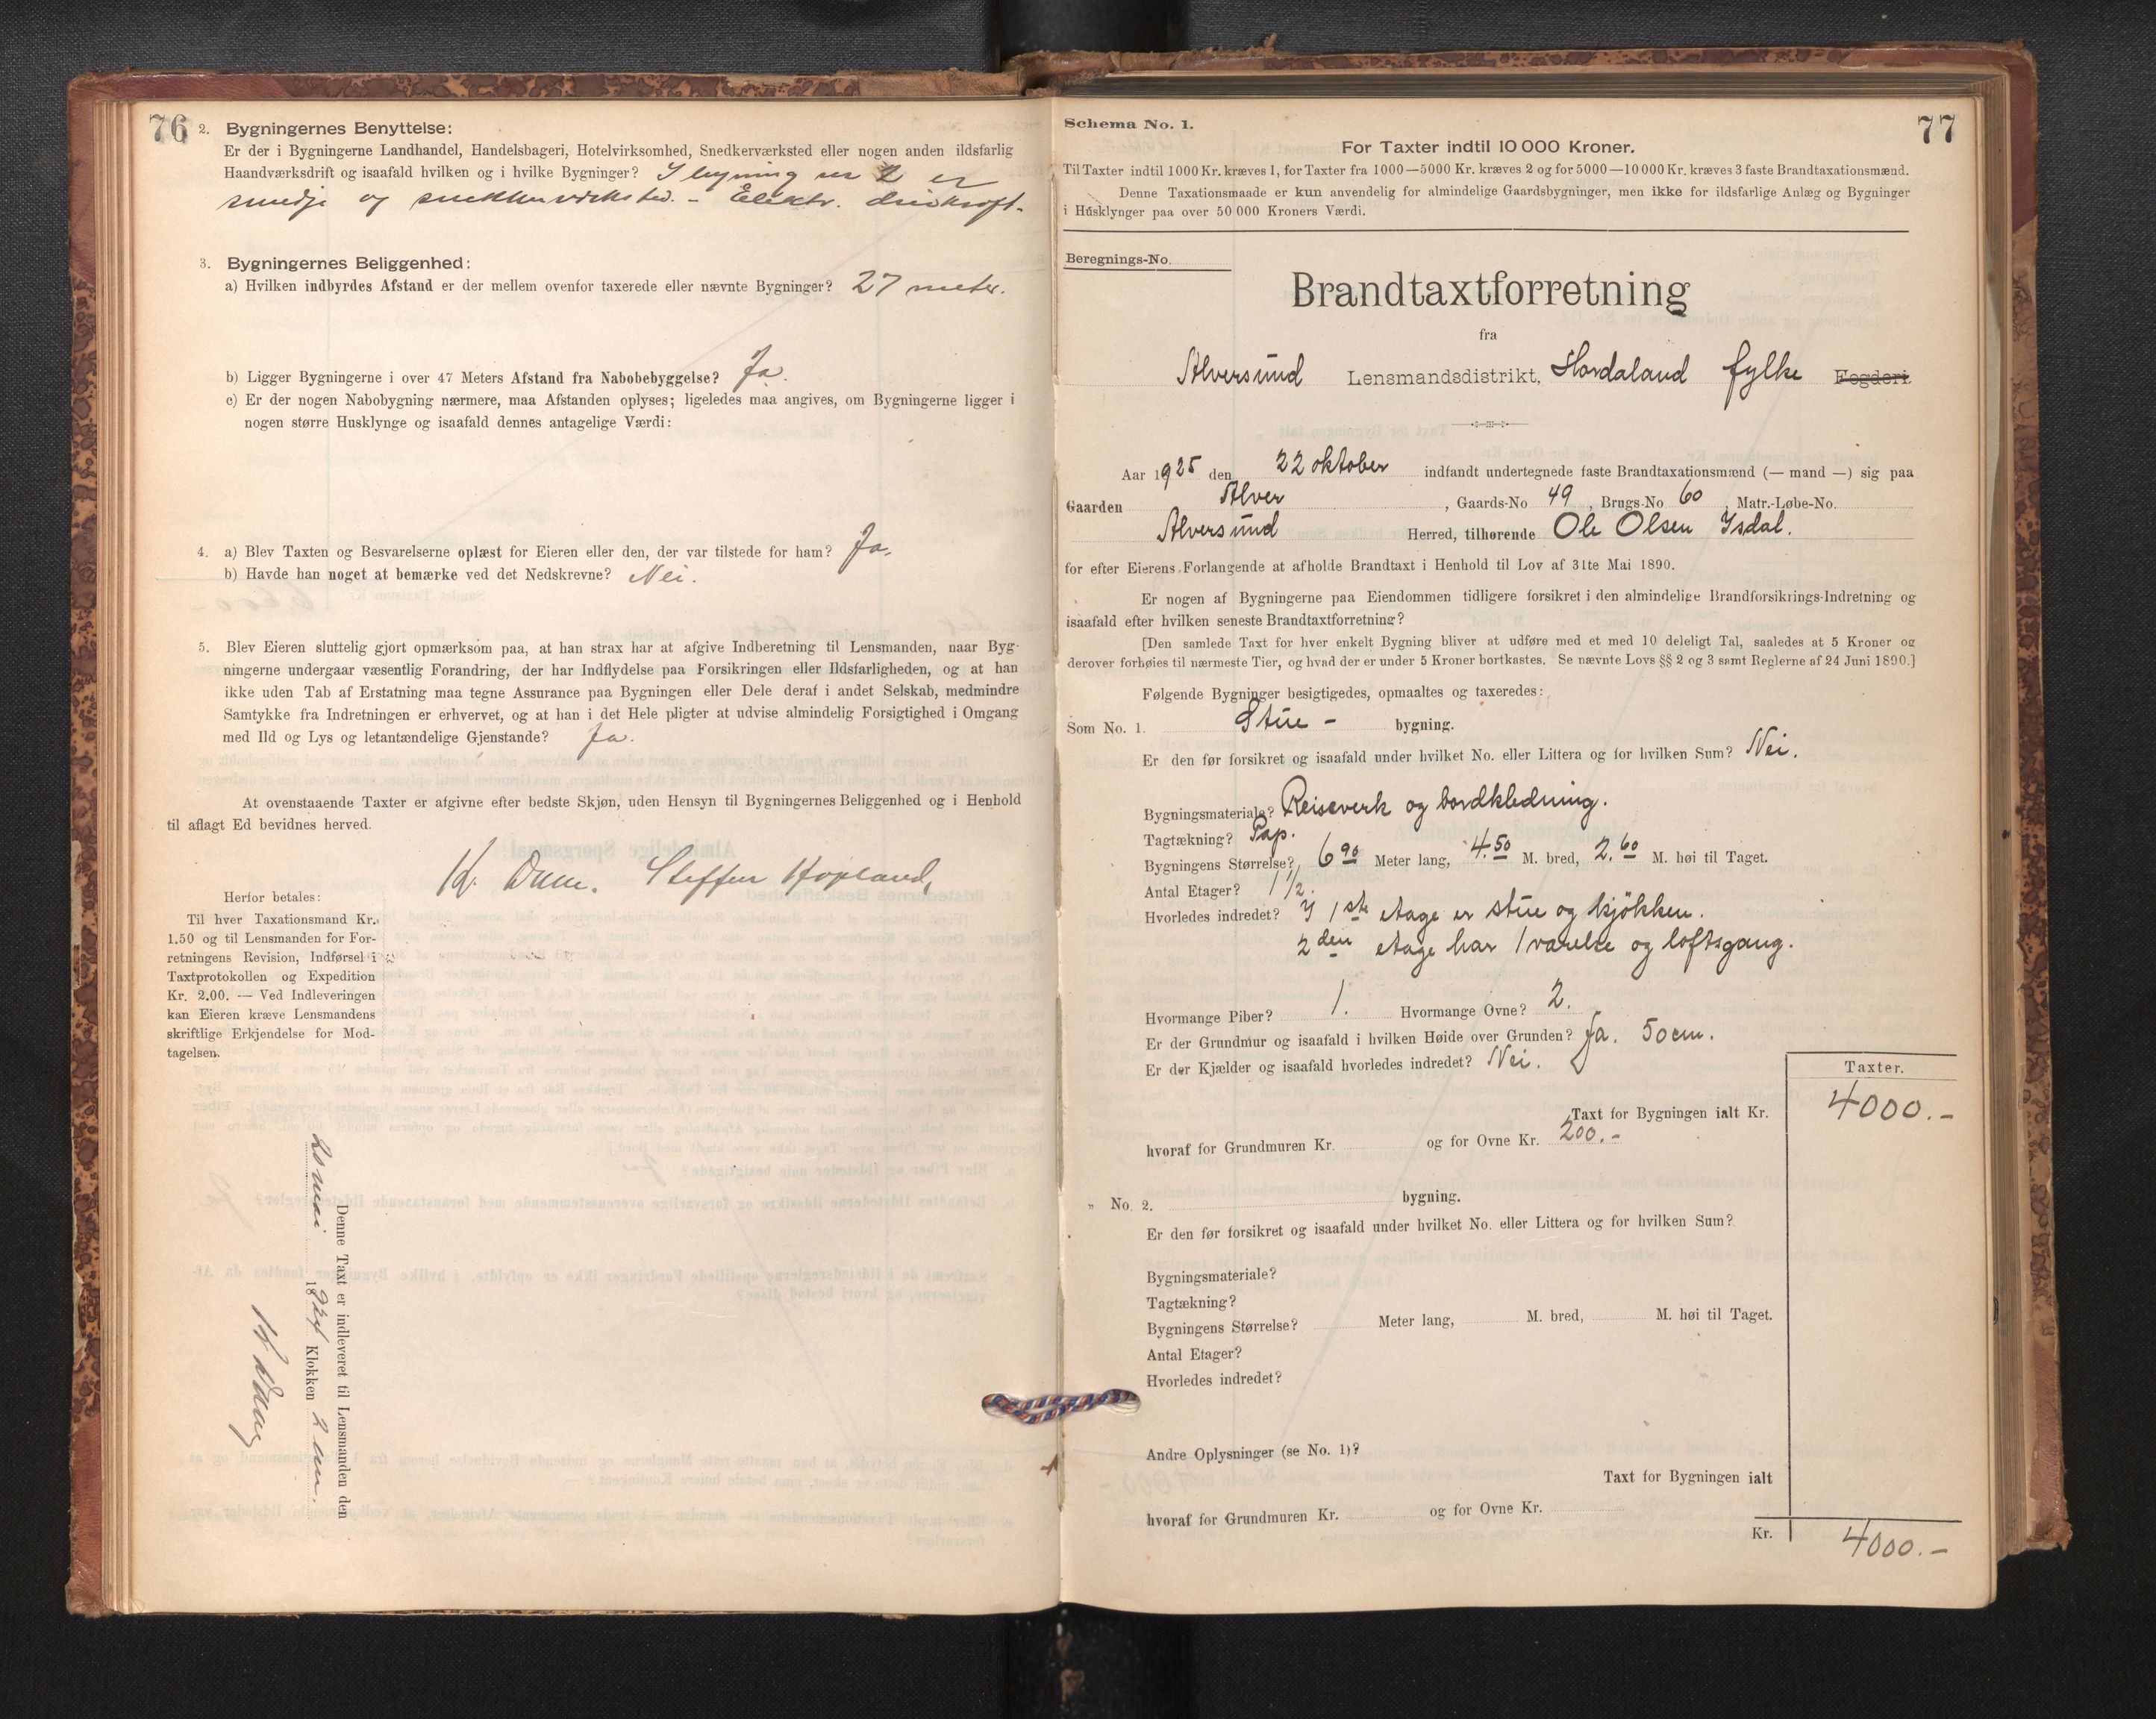 76
2. Bygningernes Benyttelse:
Er der i Bygningerne Landhandel, Handelsbageri, Hotelvirksomhed, Snedkerværksted eller nogen anden ildsfarlig
Haandværksdrift og isaafald hvilken og i hvilke Bygninger? I bygning no 2 er
smedje og snekkerverksted. - Elektr. drivkraft.
3. Bygningernes Beliggenhed:
a) Hvilken indbyrdes Afstand er der mellem ovenfor taxerede eller nævnte Bygninger? 27 meter.
b) Ligger Bygningerne i over 47 Meters Afstand fra Nabobebyggelse? Ja.
c) Er der nogen Nabobygning nærmere, maa Afstanden oplyses; ligeledes maa angives, om Bygningerne ligger i
nogen større Husklynge og isaafald dennes antagelige Værdi:
4. a) Blev Taxten og Besvarelserne oplæst for Eieren eller den, der var tilstede for ham? Ja.
b) Havde han noget at bemærke ved det Nedskrevne? Nei.
5. Blev Eieren sluttelig gjort opmærksom paa, at han strax har at afgive Indberetning til Lensmanden, naar Byg-
ningerne undergaar væsentlig Forandring, der har Indflydelse paa Forsikringen eller Ildsfarligheden, og at han
ikke uden Tab af Erstatning maa tegne Assurance paa Bygningen eller Dele deraf i andet Selskab, medmindre
Samtykke fra Indretningen er erhvervet, og at han i det Hele pligter at udvise almindelig Forsigtighed i Omgang
med Ild og Lys og letantændelige Gjenstande? Ja.
At ovenstaaende Taxter er afgivne efter bedste Skjøn, uden Hensyn til Bygningernes Beliggenhed og i Henhold
til aflagt Ed bevidnes herved.
Steffen Hopland,
Herfor betales:
Til hver Taxationsmand Kr.
1.50 og til Lensmanden for For-
retningens Revision, Indførsel i
Taxtprotokollen og Expedition
Kr. 2.00. — Ved Indleveringen
kan Eieren kræve Lensmandens
skriftlige Erkjendelse for Mod-
tagelsen.
Denne Taxt er indleveret til Lensmanden den
mai 19 Klokken 2
77
Schema No. 1.
For Taxter indtil 10 000 Kroner.
Til Taxter indtil 1000 Kr. kræves 1, for Taxter fra 1000—5000 Kr. kræves 2 og for 5000—10 000 Kr. kræves 3 faste Brandtaxationsmænd.
Denne Taxationsmaade er kun anvendelig for almindelige Gaardsbygninger, men ikke for ildsfarlige Anlæg og Bygninger
i Husklynger paa over 50 000 Kroners Værdi.
Beregnings-No.
Brandtaxtforretning
fra
Alversund Lensmandsdistrikt, Hordaland fylke Fogderi
Aar 1925 den 22 oktober indfandt undertegnede faste Brandtaxationsmænd (— mand —) sig paa
Gaarden Alver , Gaards-No 49 , Brugs-No 60 , Matr.-Løbe-No.
Alversund Herred, tilhørende Ole Olsen Ysdal.
for efter Eierens Forlangende at afholde Brandtaxt i Henhold til Lov af 31te Mai 1890.
Er nogen af Bygningerne paa Eiendommen tidligere forsikret i den almindelige Brandforsikrings-Indretning og
isaafald efter hvilken seneste Brandtaxtforretning?
[Den samlede Taxt for hver enkelt Bygning bliver at udføre med et med 10 deleligt Tal, saaledes at 5 Kroner og
derover forhøies til nærmeste Tier, og hvad der er under 5 Kroner bortkastes. Se nævnte Lovs §§ 2 og 3 samt Reglerne af 24 Juni 1890.]
Følgende Bygninger besigtigedes, opmaaltes og taxeredes:
Som No. 1. Stue - bygning.
Er den før forsikret og isaafald under hvilket No. eller Littera og for hvilken Sum? Nei.
Bygningsmateriale? Reiseverk og bordkledning.
Tagtækning? Pap.
Bygningens Størrelse? 6 90 Meter lang, 4.50 M. bred, 2.60 M. høi til Taget.
Antal Etager? 1 1/2.
Hvorledes indredet? Y 1ste etage er stue og kjøkken.
2den etage har 1 værelse og loftsgang.
Hvormange Piber? 1. Hvormange Ovne? 2.
Er der Grundmur og isaafald i hvilken Høide over Grunden? Ja. 50 cm.
Er der Kjælder og isaafald hvorledes indredet? Nei.
Taxter.
Taxt for Bygningen ialt Kr. 4000.-
hvoraf for Grundmuren Kr. og for Ovne Kr. 200.-
" No. 2. bygning.
Er den før forsikret og isaafald under hvilket No. eller Littera og for hvilken Sum?
Bygningsmateriale?
Tagtækning?
Bygningens Størrelse? Meter lang, M. bred, M. høi til Taget.
Antal Etager?
Hvorledes indredet?
Andre Oplysninger (se No. 1)?
Taxt for Bygningen ialt
hvoraf for Grundmuren Kr. og for Ovne Kr.
Kr. 4000.-